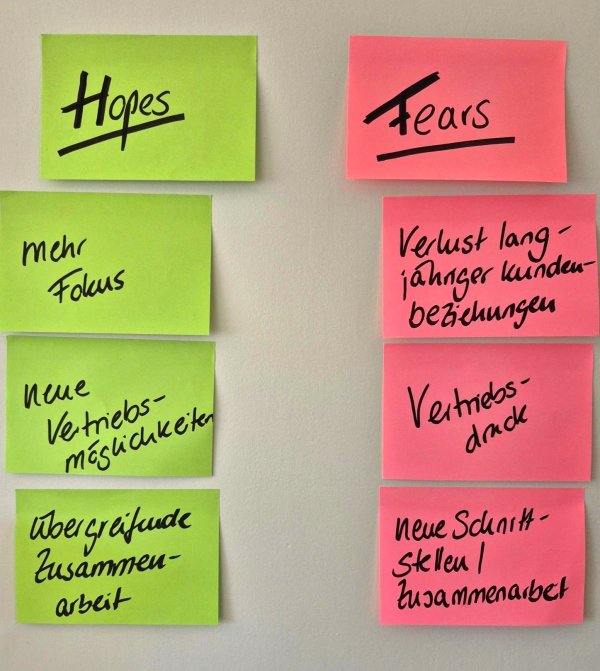 Hopes
mehr
Fokus
neue
Vertriebs-
möglichkeiten
Übergreifende
Zusammen-
arbeit
Fears
Verlust lang-
jähriger Kunden-
beziehungen
Vertriebs-
druck
neue Schnitt-
stellen /
Zusammenarbeit